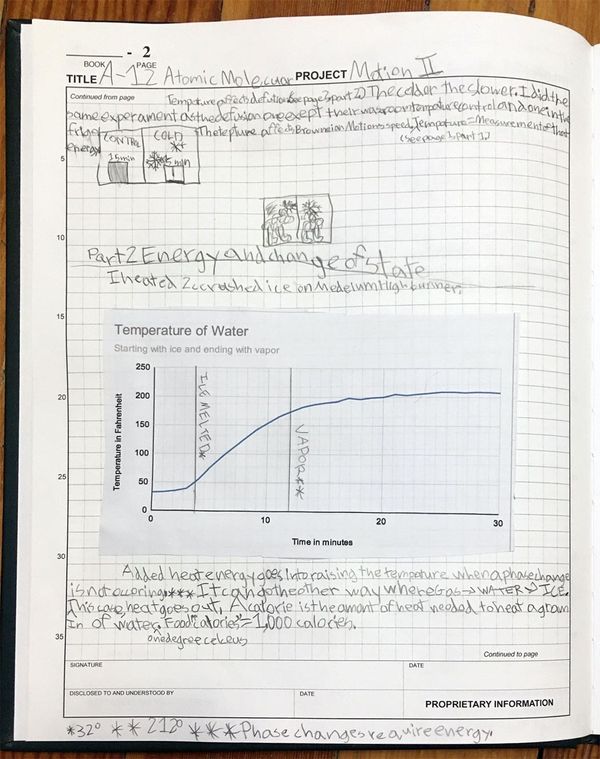 - 2
BOOK PAGE
TITLE A-12 Atomic Molecular PROJECT Motion II
Continued from page
Tempature affects defution (see page 3, part 2) The colder the slower. I did the
same experament as the defusion one exept their was a room tempature control and one in the
fridge. The tempture affects Brownein Motions speed, Tempature = Measurement of that
energy (see page 1, part 1.)
CONTROL COLD
15 min 15 min
5
10
Part 2 Energy and change of state
I heated 2c crashed ice on Medelum High burner.
15
Temperature of Water
Starting with ice and ending with vapor
Temperature in Fahrenheit
250
200
150
100
50
0
ICE MELTED*
VAPOR**
0 10 20 30
Time in minutes
20
25
30
Added heat energy goes into raising the tempature when a phase change
is not ocering.*** It can go the other way where Gas → WATER → ICE.
In This case, heat goes out. A calorie is the amont of heat needed to heat a gram
of water one degree celceus. Food "Calories" = 1,000 calories.
35
Continued to page
SIGNATURE DATE
DISCLOSED TO AND UNDERSTOOD BY DATE PROPRIETARY INFORMATION
*32° **212° ***Phase changes require energy.